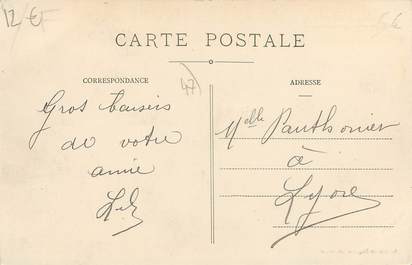 12 €
CARTE POSTALE
CORRESPONDANCE
47
ADRESSE
Gros baisers
de votre
amie
Melle Panthonier
à
Lyon